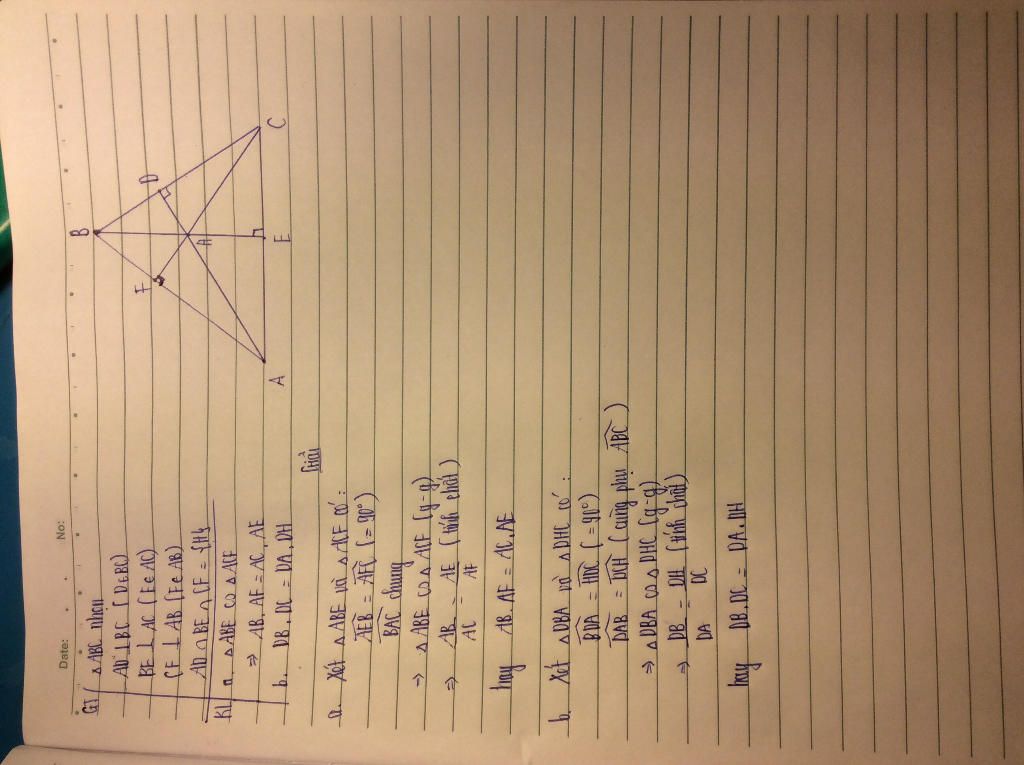 Date: No:
GT ΔABC nhọn
AD ⊥ BC (D ∈ BC)
BE ⊥ AC (E ∈ AC)
CF ⊥ AB (F ∈ AB)
AD ∩ BE ∩ CF = {H}
KL a. ΔABE ∽ ΔACF
⇒ AB. AF = AC. AE
b. DB. DC = DA. DH
B
F
D
H
A
E
C
Giải
a. Xét ΔABE và ΔACF có:
AEB = AFC (= 90°)
BAC chung
⇒ ΔABE ∽ ΔACF (g-g)
⇒ AB/AC = AE/AF (tính chất)
hay AB. AF = AC. AE
b. Xét ΔDBA và ΔDHC có:
BDA = HDC (= 90°)
DAB = DCH (cùng phụ ABC)
⇒ ΔDBA ∽ ΔDHC (g-g)
⇒ DB/DA = DH/DC (tính chất)
hay DB. DC = DA. DH